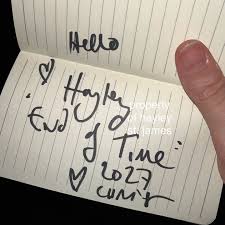 Hello
♡ Hayley
"End
of Time"
2027
♡
property
of hayley
st. james